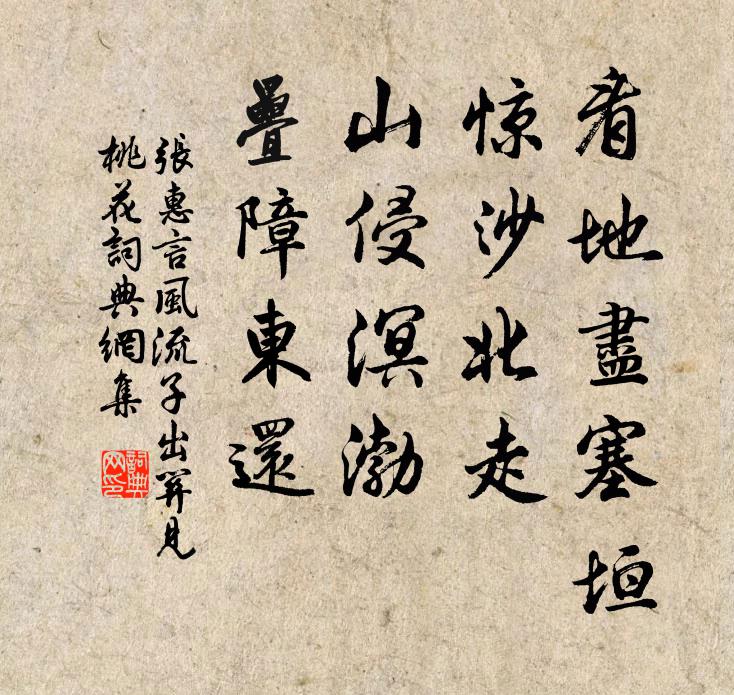 看地盡塞垣
惊沙北走
山侵溟渤
疊障東還
張惠言風流子出關見
桃花詞典網集
詞典
网印